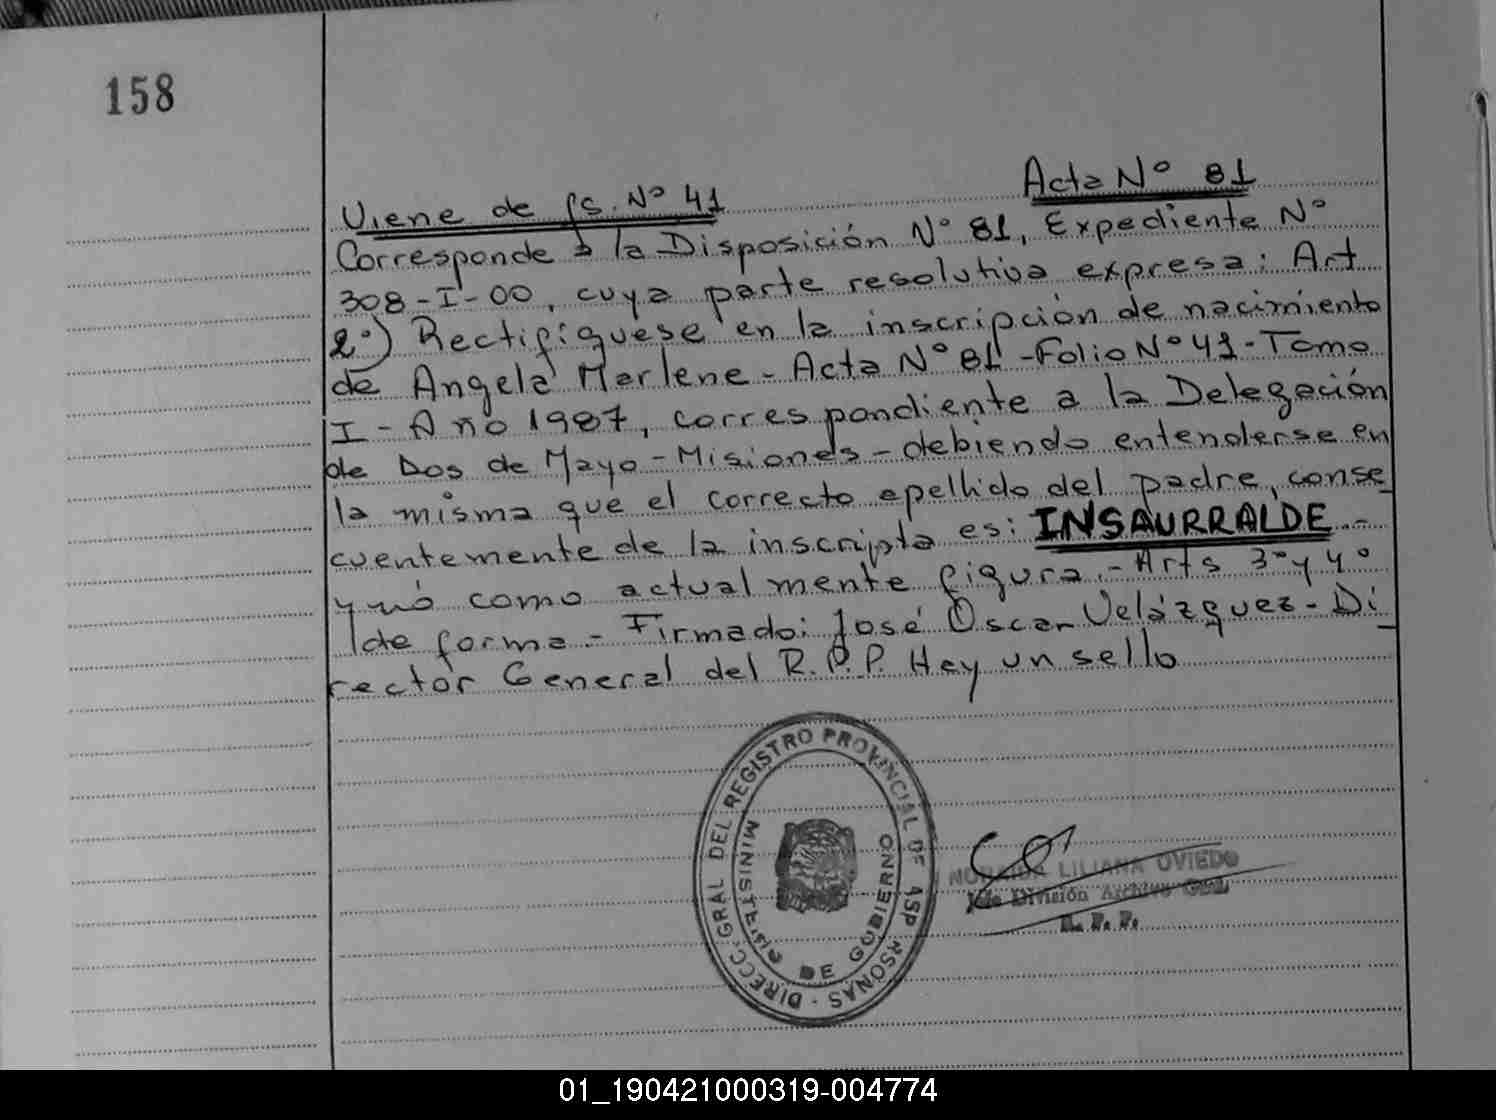 158
Viene de fs. Nº 41
Acta Nº 81
Corresponde a la Disposición Nº 81, Expediente Nº
308-I-00, cuya parte resolutiva expresa: Art
2º) Rectifíquese en la inscripción de nacimiento
de Angela Marlene - Acta Nº 81 - Folio Nº 41 - Tomo
I - Año 1987, correspondiente a la Delegación
de Dos de Mayo - Misiones - debiendo entenderse en
la misma que el correcto apellido del padre, conse_
cuentemente de la inscripta es: INSAURRALDE.-
y nó como actualmente figura.- Arts 3º y 4º
de forma.- Firmado: José Oscar Velázquez - Di_
rector General del R.P.P. Hay un sello
DIRECC. GRAL DEL REGISTRO PROVINCIAL DE
MINISTERIO DE GOBIERNO
LILIANA OVIEDO
Jefe División Archivo Gral.
R. P. P.
01_190421000319-004774